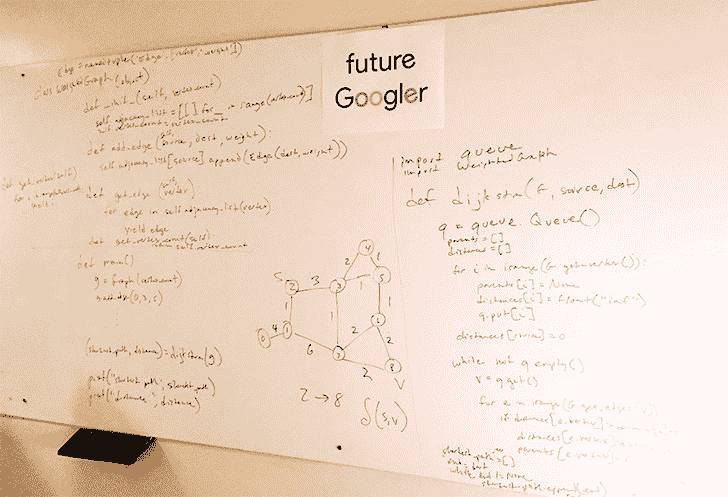 Edge = namedtuple('Edge', ['vertex', 'weight'])
class WeightedGraph(object)
def __init__(self, vertex_count)
self.adjacency_list = [[] for _ in range(vertex_count)]
self.vertex_count = vertex_count
def add_edge(self, source, dest, weight):
self.adjacency_list[source].append(Edge(dest, weight))
def get_edge(self, vertex)
for edge in self.adjacency_list(vertex)
yield edge
def get_vertex_count(self)
return self.vertex_count
def main()
g = Graph(
(shortest_path, distance) = dijkstra(g)
print("shortest path", shortest_path)
print("distance", distance)
future
Googler
4
2
1
S
2
3
3
1
5
1
1
1
0
4
1
6
2
2
2
8
V
2 → 8
δ(s,v)
import queue
import WeightedGraph
def dijkstra(G, source, dest)
q = queue.Queue()
parents = []
distances = []
for i in range(G.get_vertex()):
parents[i] = None
distances[i] = float("inf")
q.put[i]
distances[source] = 0
while not q.empty()
v = q.get()
for e in range(G.get_edges(v)
if
distances[e.vertex]
parents[e.vertex]
shortest_path = []
end = dest
while end != None